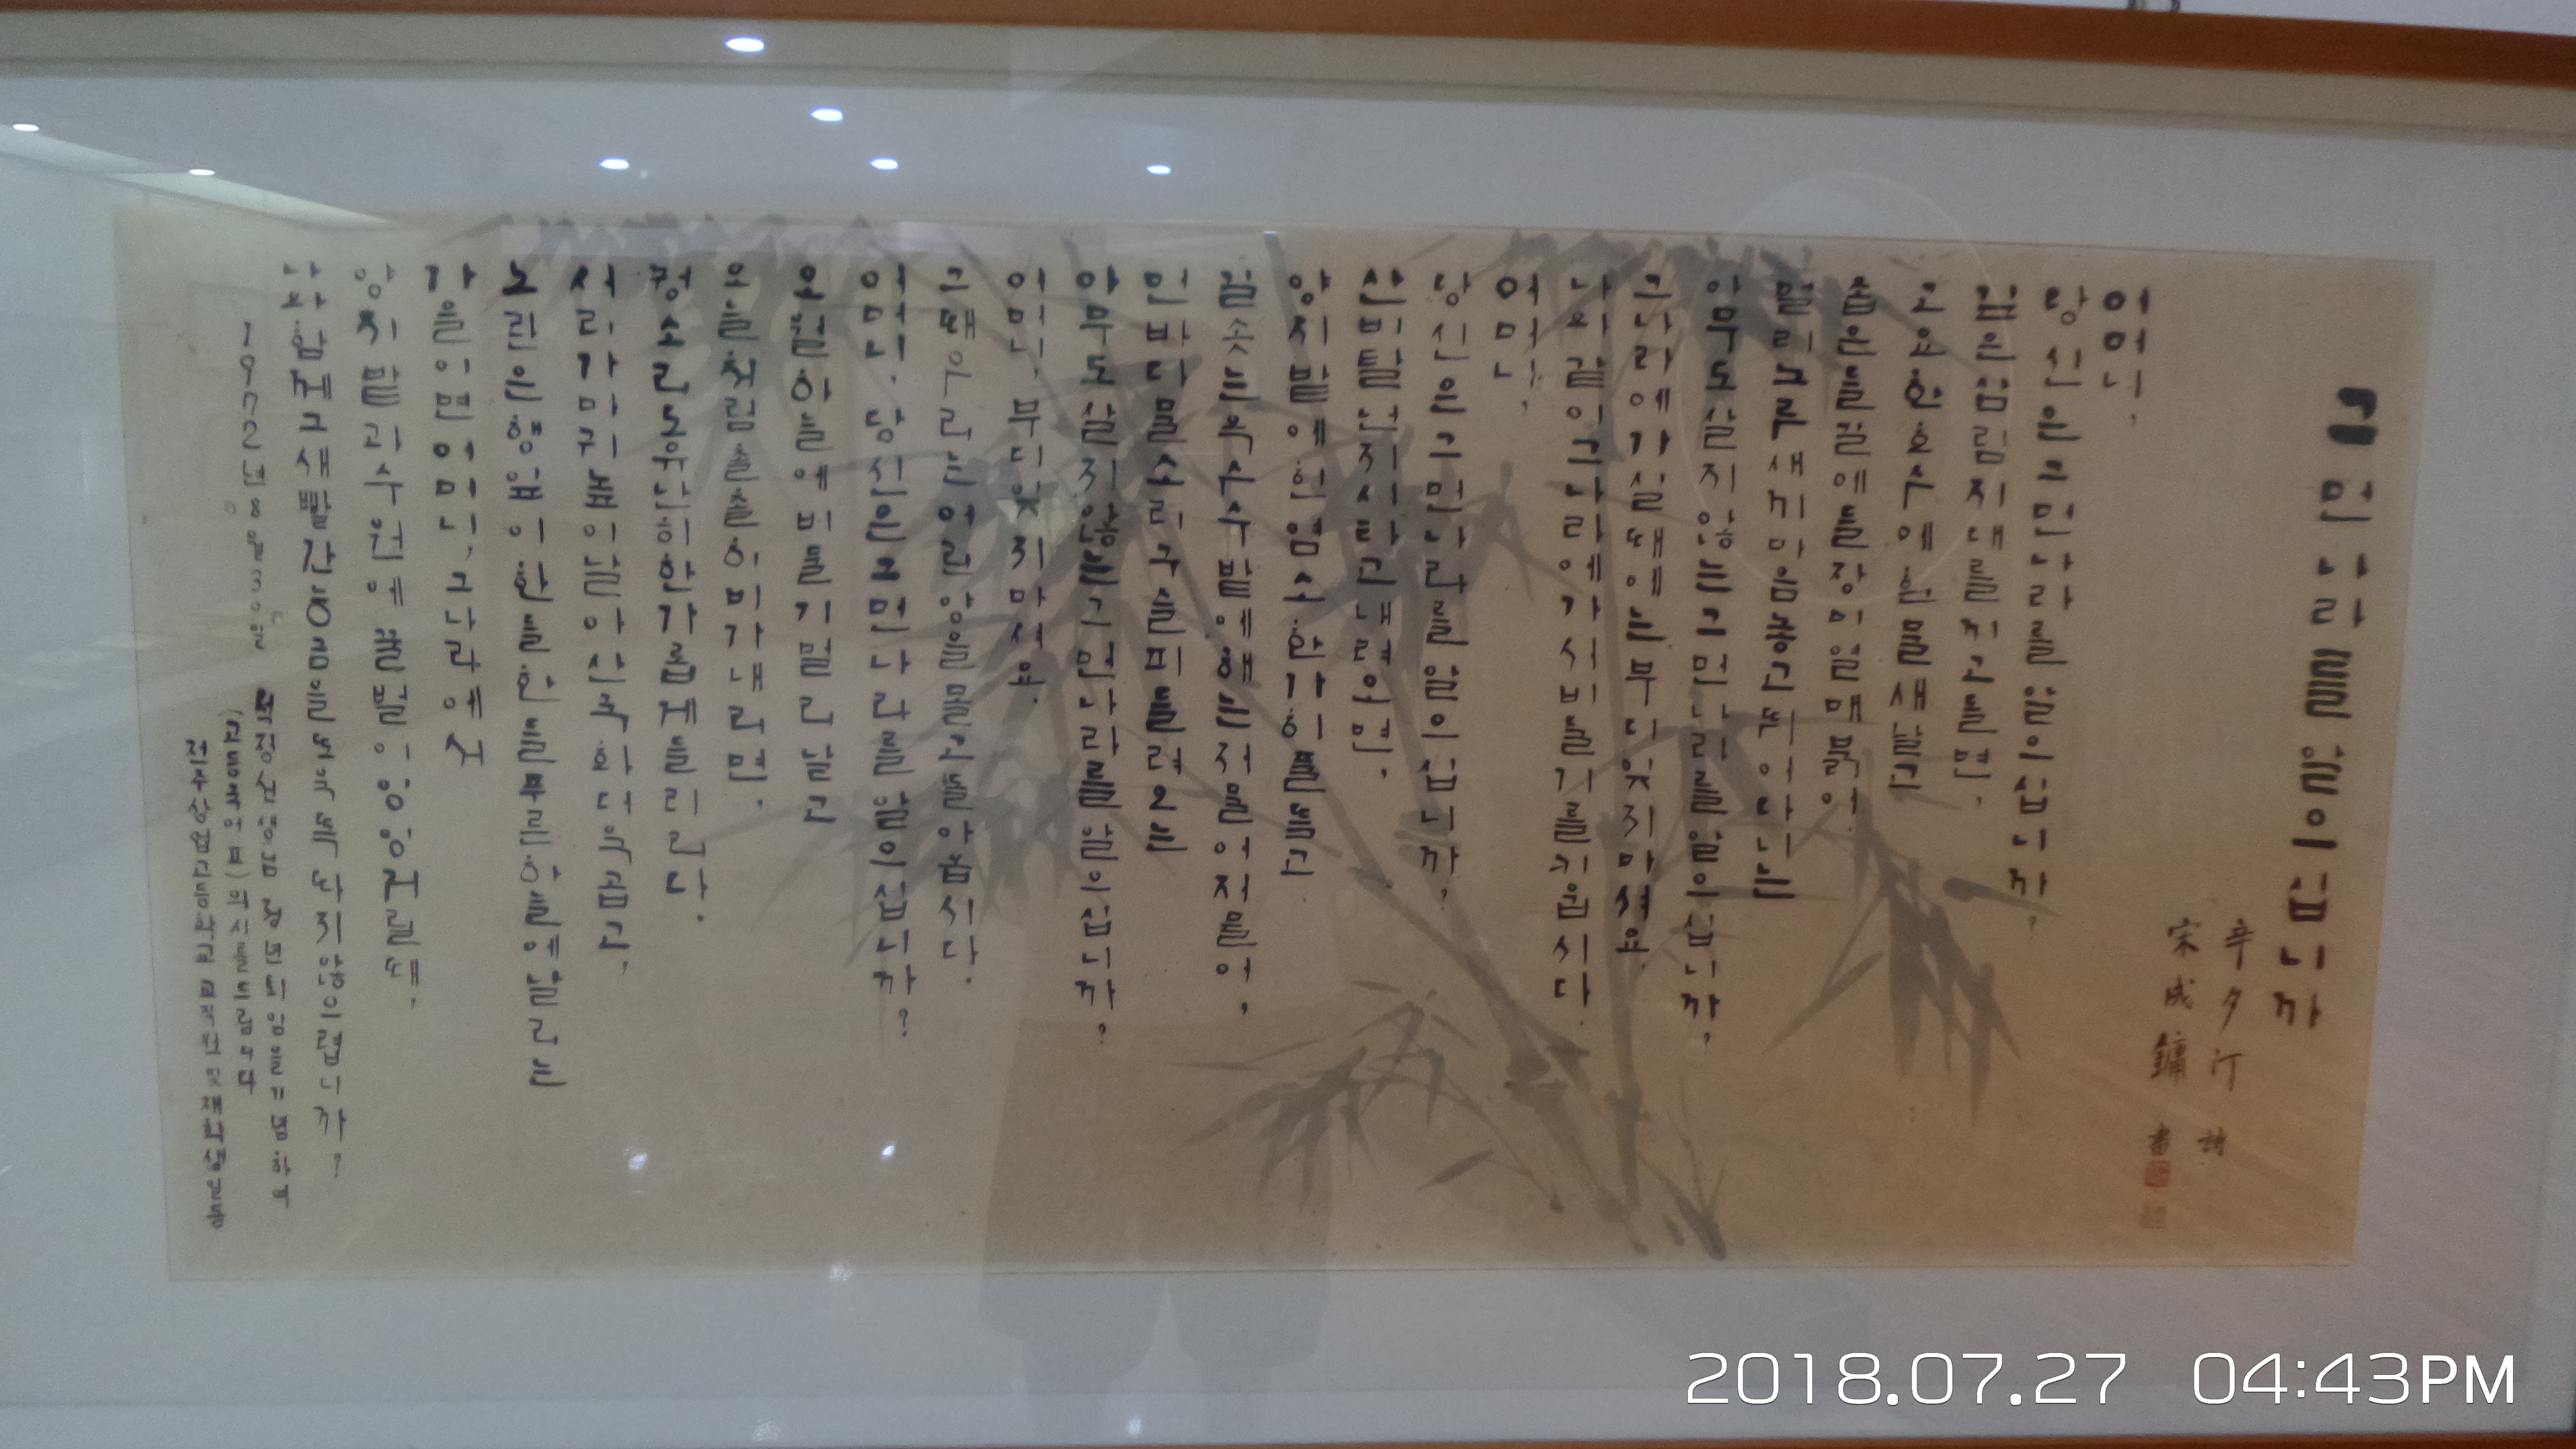 그 먼 나라를 알으십니까
辛夕汀 詩
宋成鏞 書
어머니,
당신은 그 먼 나라를 알으십니까?
깊은 삼림지대를 끼고 돌면,
고요한 호수에 흰 물새 날고
좁은 들길에 들장미 열매 붉어.
멀리 노루새끼 마음놓고 뛰어다니는
아무도 살지 않는 그 먼 나라를 알으십니까?
그 나라에 가실 때에는 부디 잊지 마셔요.
나와 같이 그 나라에 가서 비둘기를 키웁시다.
어머니,
당신은 그 먼 나라를 알으십니까?
산비탈 넌지시 타고 내려오면,
양지밭에 흰 염소 한가히 풀 뜯고
길 솟는 옥수수밭에 해는 저물어 저물어,
먼 바다 물소리 구슬피 들려오는
아무도 살지 않는 그 먼 나라를 알으십니까?
어머니, 부디 잊지 마셔요.
그때 우리는 어린 양을 몰고 돌아옵시다.
어머니, 당신은 그 먼 나라를 알으십니까?
오월 하늘에 비둘기 멀리 날고
오늘처럼 촐촐히 비가 내리면,
꿩소리도 유난히 한가롭게 들리리다.
서리가마귀 높이 날아 산국화 더욱 곱고,
노란 은행잎이 한들한들 푸른 하늘에 날리는
가을이면 어머니, 그 나라에서
양지밭 과수원에 꿀벌이 잉잉거릴 때,
나와 함께 그 새빨간 능금을 또옥 똑 따지 않으렵니까?
1972년 8월 30일 선생님 정년퇴임을 기념하고
의 시를 드립니다
전주상업고등학교 교직원 및 재학생 일동
2018.07.27 04:43PM